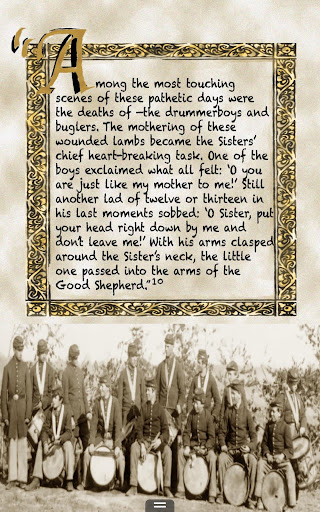 “Among the most touching
scenes of these pathetic days were
the deaths of —the drummerboys and
buglers. The mothering of these
wounded lambs became the Sisters’
chief heart-breaking task. One of the
boys exclaimed what all felt: ‘O you
are just like my mother to me!’ Still
another lad of twelve or thirteen in
his last moments sobbed: ‘O Sister, put
your head right down by me and
don’t leave me!’ With his arms clasped
around the Sister’s neck, the little
one passed into the arms of the
Good Shepherd.”10